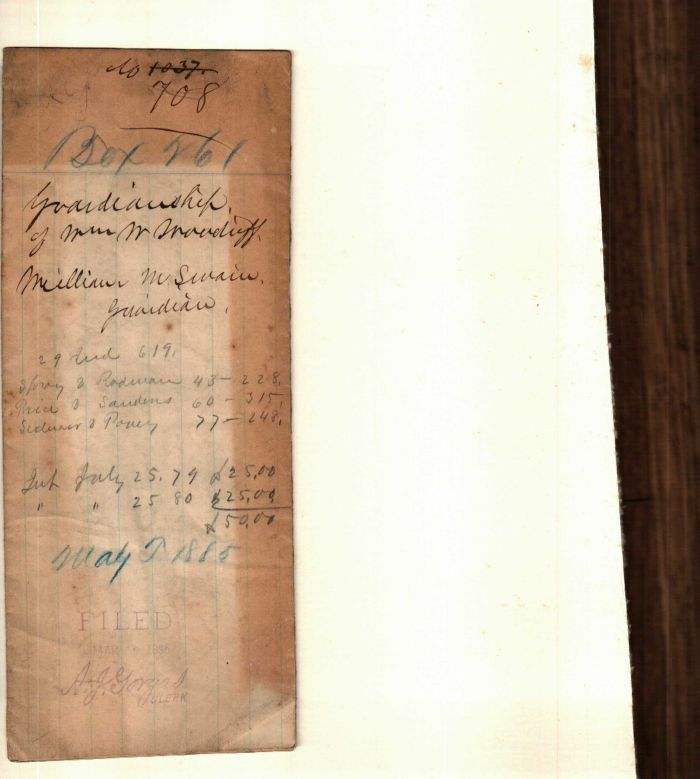 No 1037.
708
Box 261
Guardianship,
of Wm W Woodruff.
William M Swain,
Guardian,
29 Ind 619,
Spray & Rodman 43 – 228,
Price & Sanders 60 – 315,
Sidener & Povey 77 – 248,
Int July 25. 79 $25,00
" " 25 80 $25,00
$50,00
May T. 1885
FILED
MAR
CLERK